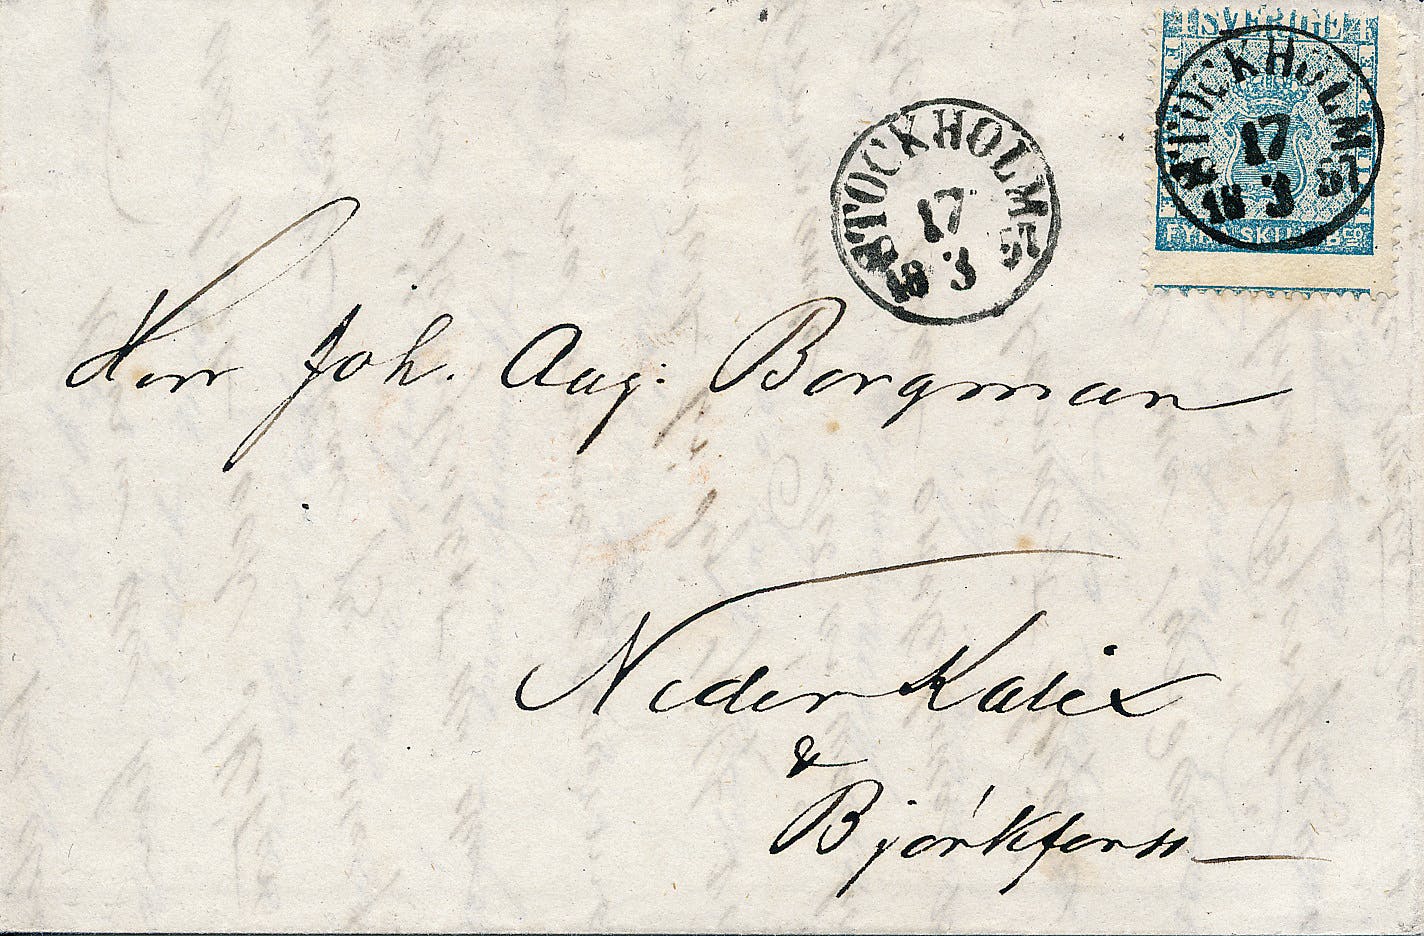 SVERIGE
STOCKHOLM
17
18 3 57
FYRA SKILL. BCO
STOCKHOLM
17
18 3 57
Herr Joh. Aug: Bergman
Neder Kalix
&
Björkforss